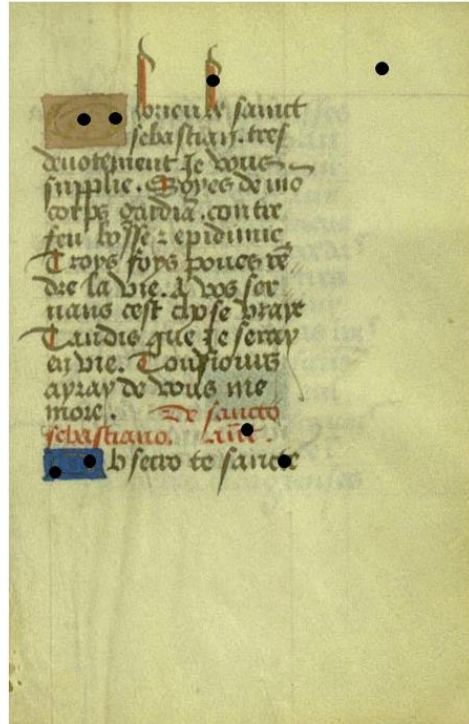 sainct
sebastian. tres
deuotement Je vous
supplie. Soyes de mō
corps gardiā. contre
feu bosse z epidimie
Troys foys poues rē
dre la vie. A vos ser
uans cest chose vraye
Tandis que Je seray
en vie. Tousiours
ayray de vous me
more. De sancto
sebastiano.
O b secro te sancte